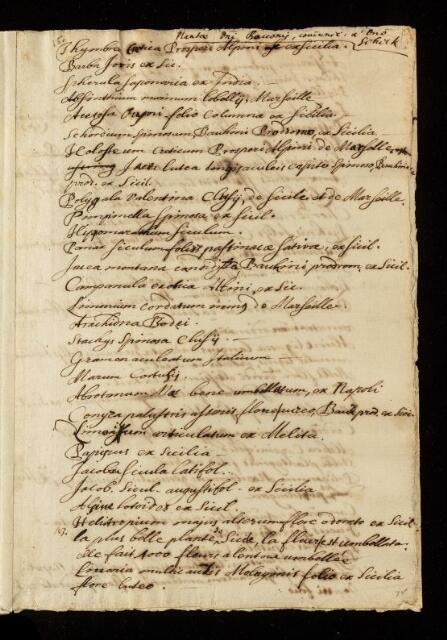 Plantæ Dni Bocconij, communic. a Dno
Scherk
Thymbra Cretica Prosperi Alpini ex Sicilia.
Barba Jovis ex Sic.
Spherula saponaria ex India.
Absinthium minimum lobelly, Marseille
Acetosa Ocymi folio Columnæ ex Sicilia
Scordium spinosum, Bauhini Prodromo, ex Sicilia
Holosteum Creticum Prosperi Alpini de Marseille
Jacea lutea longis aculeis capite spinoso, Bauhini
prod. ex Sicil.
Polygala Valentina Clusij, de Sicile et de Marseille.
Pimpinella spinosa ex Sicil.
Hypomarathrum Siculum.
Panax Siculum folijs pastinacæ sativæ, ex Sicil.
Jacea montana candidissima Bauhini prodrom. ex Sicil.
Campanula exotica Alpini, ex Sic.
Limonium cordatum minus de Marseille.
Arachidna
Stachys Spinosa Clusij
Gramen aculeatum Italicum
Marum Cortusij.
Abrotanum bene umbellatum, ex Napoli
Conyza palustris flore Bauh. prod. ex Sic.
Limonium articulatum ex Melita.
Papyrus ex Sicilia
Jacobæa Sicula latifol.
Jacob. Sicul. angustifol. ex Sicilia
Alsine lotoides ex Sicil.
Heliotropium majus alterum flore odorato ex Sicil.
la plus belle plante de Sicile, la fleur est umbellata
elle fait 4000 fleurs alentour umbellæ
Linaria folio ex Sicilia
flore luteo.